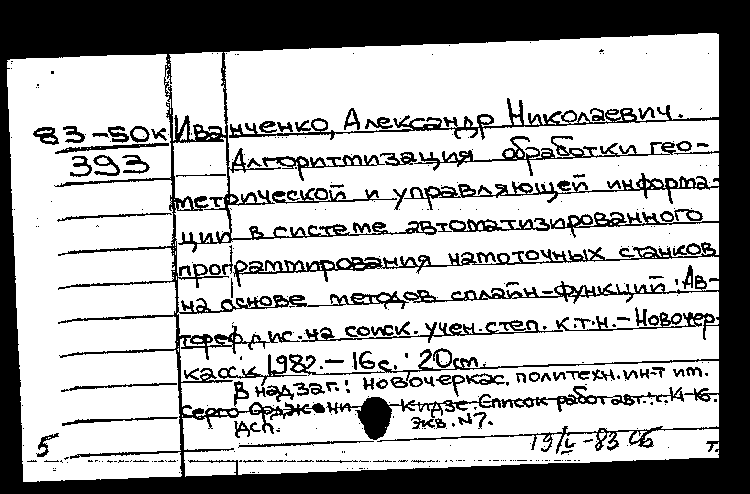 83-50к Иванченко, Александр Николаевич.
393 Алгоритмизация обработки гео-
метрической и управляющей информа-
ции в системе автоматизированного
программирования намоточных станков
на основе методов сплайн-функций: Ав-
тореф. дис. на соиск. учен. степ. к.т.н. - Новочер-
касск, 1982. - 16 с.; 20 см.
В надзаг.: Новочеркас. политехн. ин-т им.
Серго Орджоникидзе. Список работ авт.: с. 14-16.
Дсп. экз. N 7.
5 19/V-83 СБ т.